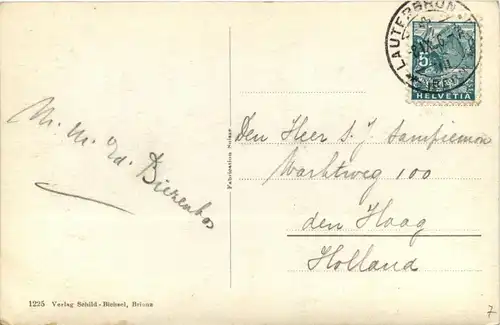 LAUTERBRUN
5
HELVETIA
M. M. Ed. Biezenbos
Den Heer S. J. Sampiemon
Marktweg 100
den Haag
Holland
Fabrication Suisse
1225 Verlag Schild-Bichsel, Brienz
7